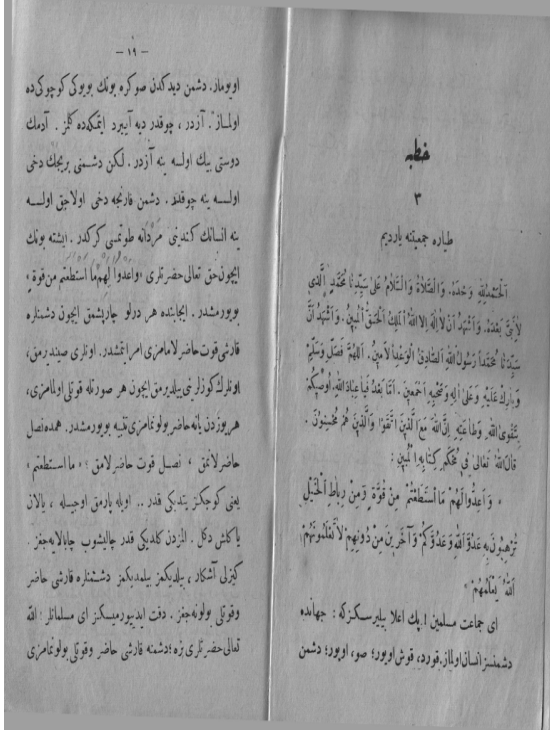 خطبه
٣
طياره جمعيتنه يارديم
اَلْحَمْدُ لِلّٰهِ وَحْدَهُ. وَالصَّلَاةُ وَالسَّلَامُ عَلَى سَيِّدِنَا مُحَمَّدٍ اَلَّذِى
لَا نَبِىَّ بَعْدَهُ. وَاَشْهَدُ اَنْ لَا اِلٰهَ اِلَّا اللهُ اَلْمَلِكُ الْحَقُّ الْمُبِينُ. وَاَشْهَدُ اَنَّ
سَيِّدَنَا مُحَمَّداً رَسُولُ اللهِ الصَّادِقُ الْوَعْدِ الْاَمِينُ. اَللّٰهُمَّ فَصَلِّ وَسَلِّمْ
وَبَارِكْ عَلَيْهِ وَعَلَى اٰلِهِ وَصَحْبِهِ اَجْمَعِينَ. اَمَّا بَعْدُ فَيَا عِبَادَ اللهِ اُوصِيكُمْ
بِتَقْوَى اللهِ وَطَاعَتِهِ اِنَّ اللهَ مَعَ الَّذِينَ اتَّقَوْا وَالَّذِينَ هُمْ مُحْسِنُونَ.
قَالَ اللهُ تَعَالَى فِى مُحْكَمِ كِتَابِهِ الْمُبِينِ:
« وَاَعِدُّوا لَهُمْ مَا اسْتَطَعْتُمْ مِنْ قُوَّةٍ وَمِنْ رِبَاطِ الْخَيْلِ
تُرْهِبُونَ بِهِ عَدُوَّ اللهِ وَعَدُوَّكُمْ وَآخَرِينَ مِنْ دُونِهِمْ لَا تَعْلَمُونَهُمْ
اَللهُ يَعْلَمُهُمْ »
اى جماعت مسلمين! پك اعلا بيليرسكزكه: جهانده
دشمنسز انسان اولماز. قورد، قوش اويور؛ صو، اويور؛ دشمن
– ١٩ –
اويوماز. دشمن ديدكدن صوكره بونك بويوكى كوچوكى ده
اولماز. آزدر، چوقدر ديه آييرد ايتمكده كلمز. آدمك
دوستى بيك اولسه ينه آزدر. لكن دشمنى بريجك دخى
اولسه ينه چوقدر. دشمن قارنجه دخى اولاجق اولسه
ينه انسانك كندينى مردانه طوتمسى كركدر. ايشته بونك
ايچون حق تعالى حضرتلرى «وَاَعِدُّوا لَهُمْ مَا اسْتَطَعْتُمْ مِنْ قُوَّةٍ»
بويورمشدر. ايجابنده هر درلو چارپشمق ايچون دشمنلره
قارشى قوت حاضرلامامزى امر ايتمشدر. اونلرى صينديرمق،
اونلرك كوزلرينى ييلديرمق ايچون هر صورتله قوتلى اولمامزى،
هر يوزدن يانه حاضر بولونمامزى تنبيه بويورمشدر. همده نصل
حاضرلانمق، نصل قوت حاضرلامق: « ما استطعتم »
يعنى كوجكز يتديكى قدر.. اويله يارمق اوجيله، يالان
ياكلش دكل. المزدن كلديكى قدر چاليشوب چابالايه جغز.
كيزلى آشكار، بيلديكمز بيلمديكمز دشمنلره قارشى حاضر
وقوتلى بولونه جغز. دقت ايدييورميسكز اى مسلمانلر: الله
تعالى حضرتلرى بزه؛ دشمنه قارشى حاضر وقوتلى بولونمامزى